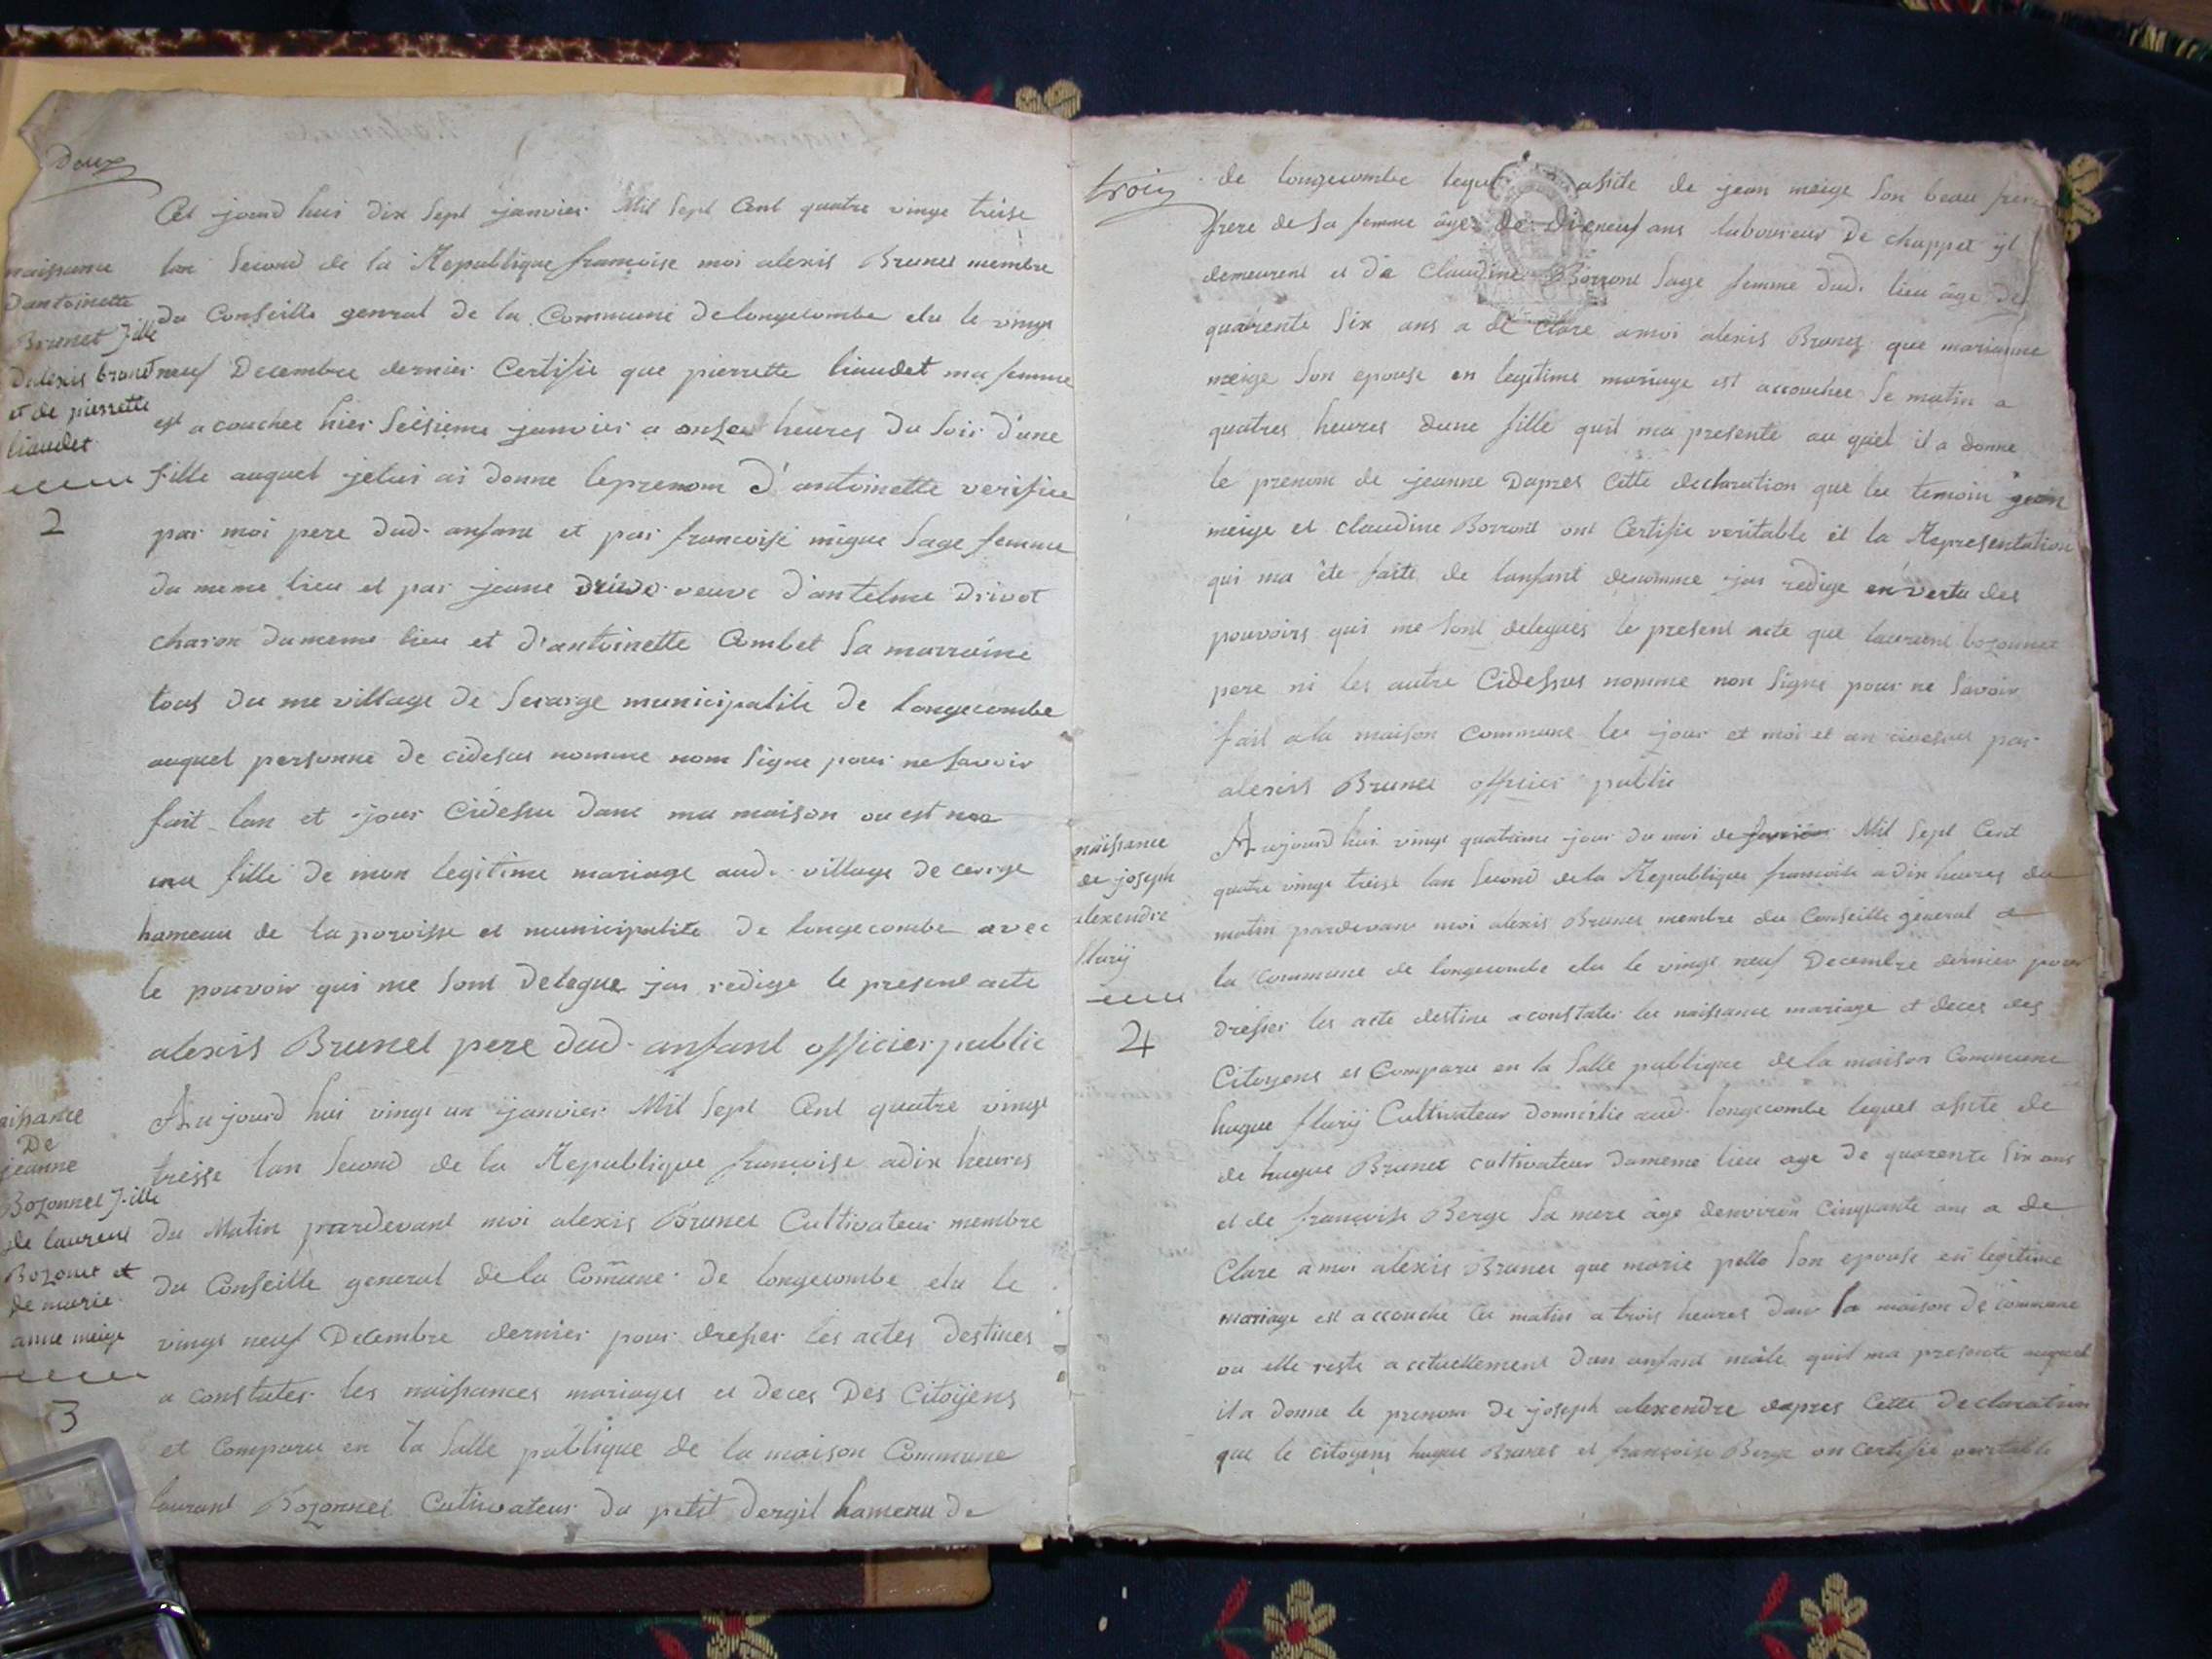 Deux
Cet jourd hui dix Sept janvier Mil Sept Cent quatre vingt treise
lan Second de la Republique francoise moi alexis Brunet membre
du Conseille genral de la Commune de longecombe elu le vingt
neuf Decembre dernier Certifie que pierrette liaudet ma femme
est acouchee hier Seisieme janvier a onze heures du Soir d'une
fille auquel jelui ai donne leprenom d'antoinette verifiee
par moi pere dud. anfant et par francoise migue Sage femme
du meme lieu et par jeanne veuve d'antelme drivet
charon dumeme lieu et d'antoinette Combet Sa marraine
tous du me village de Serarge municipalite de longecombe
auquel personne de cidesus nomme nom Signe pour ne Savoir
fait lan et jour Cidessu dans ma maison ou est nee
ma fille de mon legitime mariage aud. village de cerige
hameau de la paroisse et municipalite de longecombe avec
le pouvoir qui me Sont delegue jai redige le present acte
alexis Brunet pere dud. anfant officier public
naissance
dantoinette
Brunet fille
dalexis brunet
et de pierrette
liaudet
2
Au jourd hui vingt un janvier Mil Sept Cent quatre vingt
treisse lan Second de la Republique françoise adix heures
du Matin pardevant moi alexis Brunet Cultivateur membre
du Conseille general de la Comune de longecombe elu le
vingt neuf Decembre dernier pour dresser les actes destines
a constater les naissances mariages et deces Des Citoÿens
et Comparu en la Salle publique de la maison Commune
laurant Bozonnet Cutivateur du petit dergil hameau de
aissance
De
jeanne
Bozonnet fille
de laurent
Bozonet et
de marie
anne meige
3
trois
de longecombe lequel asiste de jean meige Son beau frere
frere de Sa femme âge de dixneuf ans laboureur De chappet yl
demeurent et de Claudine Borront Sage femme dud. lieu âge de
quarente Six ans a de Clare amoi alexis Brunet que marianne
meige Son epouse en legitime mariage est accouchee Se matin a
quatres heures dune fille quil ma presente au quel il a donne
le prenom de jeanne Dapres Cette declaration que les temoin jean
meige et claudine Borront ont Certifie veritable et la Representation
qui ma ête faite de lanfant denomme jai redige en vertu des
pouvoirs qui me Sont delegues le present acte que laurent bozonnet
pere ni les autre Cidessus nomme non Signe pour ne Savoir
fait ala maison Commune les jour et moi et an par
alexis Brunet officier public
Aujourd hui vingt quatrieme jour du moi de janvier Mil Sept Cent
quatre vingt treise lan Second dela Republique francoise adix heures du
matin pardevant moi alexis Brunet membre du Conseille general de
la commune de longecombe elu le vingt neuf Decembre dernier pour
dresser les acte destine aconstater les naissance mariage et deces des
Citoyens et Comparu en la Salle publique de la maison Commune
hugue flurÿ Cultivateur aud. longecombe lequel asiste de
de hugue Brunet cultivateur dumeme lieu age de quarente Six ans
et de françoise Berge Sa mere âge denviron Cinquante ans a de
Clare amoi alexis Brunet que marie pello Son epouse en legitime
mariage est accouche Ce matin a trois heures dans la maison de commune
ou elle reste a ctuellement dun anfant mâle quil ma presente auquel
il a donne le prenom de joseph alexendre dapres Cette declaration
que le citoyens hugue Brunet et françoise Berge on certifie veritable
naissance
de joseph
alexendre
flurÿ
4